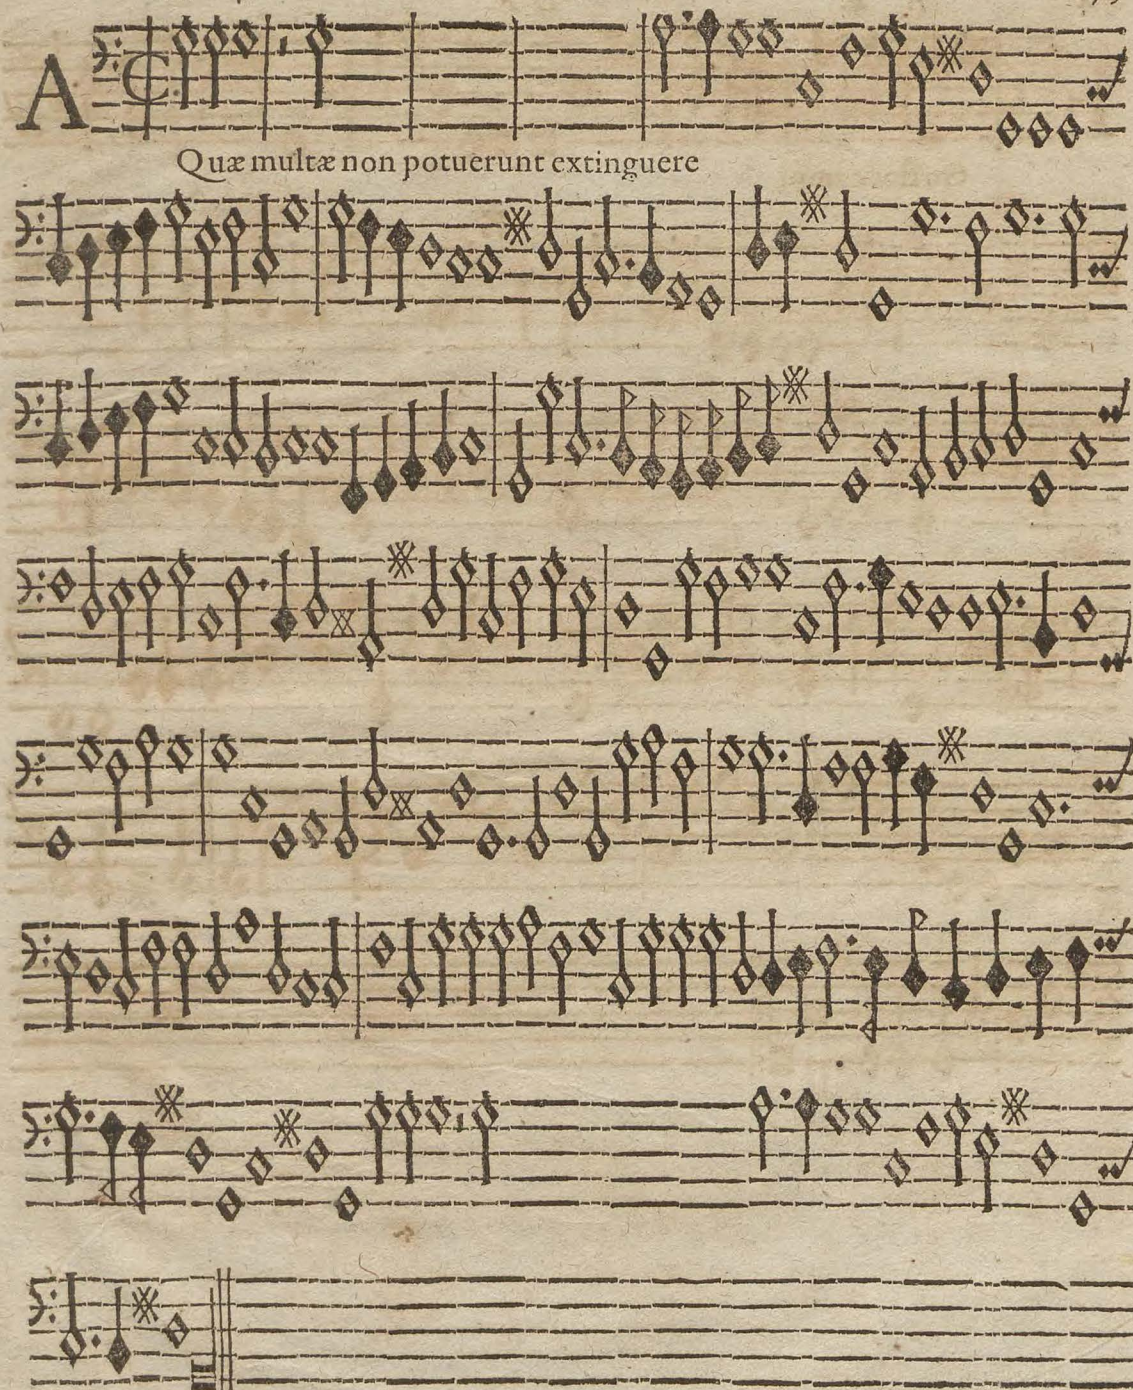 A
Quæ multæ non potuerunt extinguere